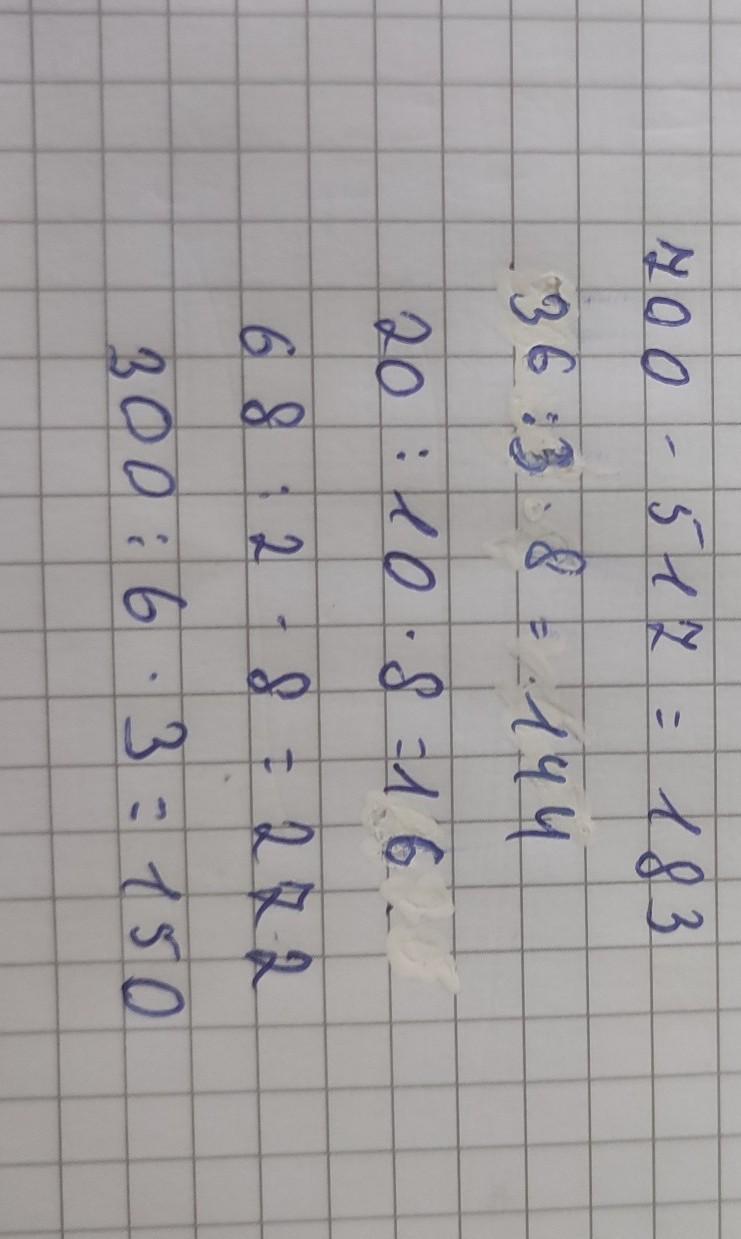 700 - 517 = 183
36 : 3 · 8 = 144
20 : 10 · 8 = 16
68 : 2 · 8 = 272
300 : 6 · 3 = 150